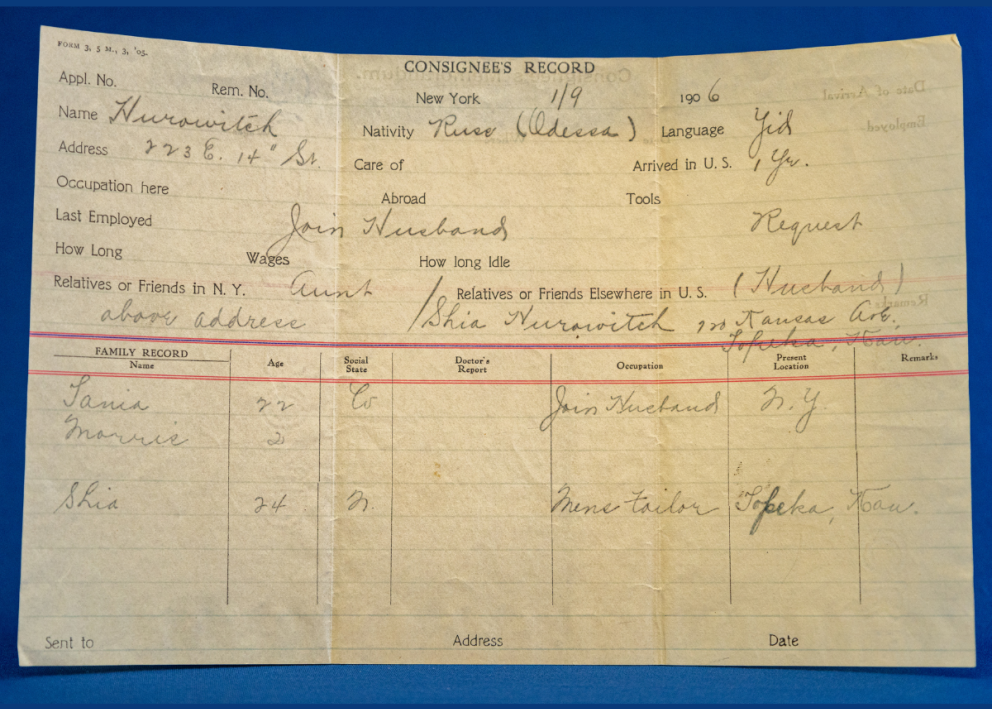 FORM 3, 5 M., 3, '05.
CONSIGNEE'S RECORD
Appl. No. Rem. No. New York 1/9 1906
Name Hurowitch Nativity Russ (Odessa) Language Yid
Address 223 E. 14" St. Care of Arrived in U. S. 1 Yr.
Occupation here Abroad Tools
Last Employed Join Husband Request
How Long Wages How long Idle
Relatives or Friends in N. Y. Aunt Relatives or Friends Elsewhere in U. S. (Husband)
above address / Shia Hurowitch Kansas Ave.
Topeka, Kan.
FAMILY RECORD
Name Age Social State Doctor's Report Occupation Present Location Remarks
Tania 22 Join Husband N. Y.
Morris 2
Shia 24 M. Mens Tailor Topeka, Kan.
Sent to Address Date